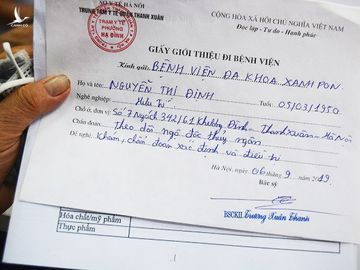 SỞ Y TẾ HÀ NỘI
TRUNG TÂM Y TẾ QUẬN THANH XUÂN
CỘNG HÒA XÃ HỘI CHỦ NGHĨA VIỆT NAM
Độc lập - Tự do - Hạnh phúc
TRẠM Y TẾ
PHƯỜNG
HẠ ĐÌNH
GIẤY GIỚI THIỆU ĐI BỆNH VIỆN
Kính gửi: BỆNH VIỆN ĐA KHOA XANH PON
Họ và tên: NGUYỄN THỊ ĐÌNH 05/03/1950
Nghề nghiệp: Hưu trí
Chỗ ở, đơn vị: Số 7 Ngách 342/61 Khương Đình - Thanh Xuân - Hà Nội
Chẩn đoán: Theo dõi ngộ độc thủy ngân
Đề nghị: Khám, chẩn đoán xác định và điều trị
Hà Nội, ngày 06 tháng 9 năm 2019
Bác sỹ
BSCKII. Trương Xuân Thanh
Hóa chất/mỹ phẩm
Thực phẩm